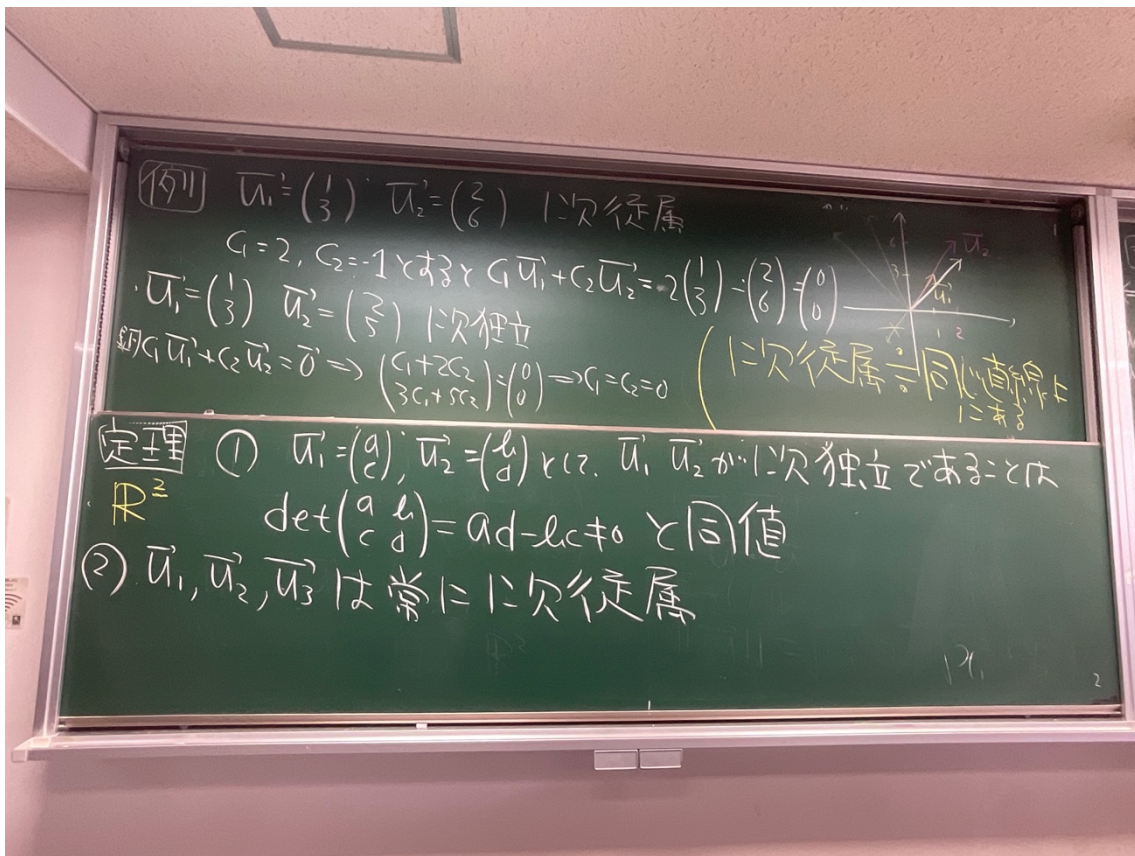 例 u₁=(1 3) u₂=(2 6) 1次従属
C₁=2, C₂=-1とすると C₁u₁+C₂u₂=2(1 3)-(2 6)=(0 0)
・u₁=(1 3) u₂=(2 5) 1次独立
C₁u₁+C₂u₂=0 ⟹ (C₁+2C₂ 3C₁+5C₂)=(0 0) ⟹C₁=C₂=0
u₂
u₁
1 2
3
(1次従属 ÷ 同じ直線上
にある
定理 ① u₁=(a c), u₂=(b d)として. u₁ u₂が1次独立であることは
ℝ²
det(a b c d)=ad-bc≠0 と同値
(2) u₁, u₂, u₃は常に1次従属
2